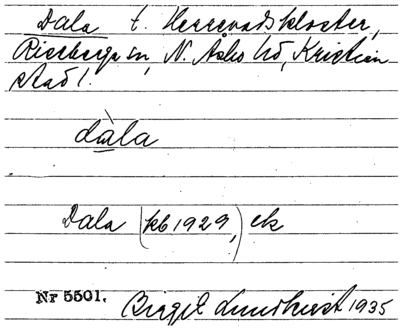 Dala t. Herrevadskloster,
Riseberga sn, N. Åsbo hd, Kristian
stad l.
dàla
Dala (kb 1929,) ek
Nr 5501. Birgit Lundkvist 1935